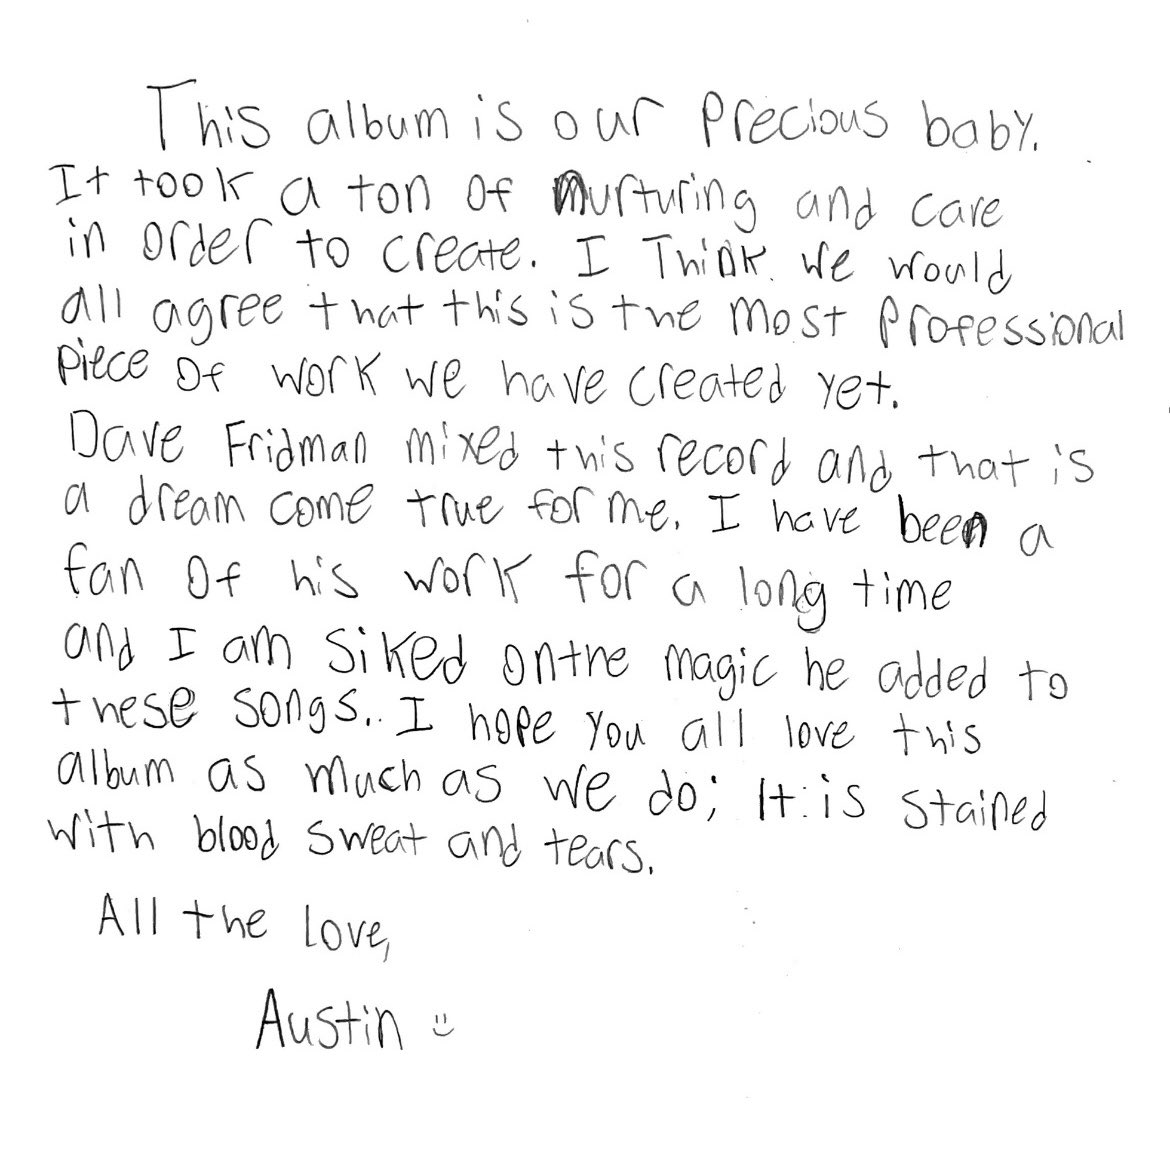 This album is our precious baby.
It took a ton of nurturing and care
in order to create. I Think we would
all agree that this is the most professional
piece of work we have created yet.
Dave Fridman mixed this record and that is
a dream come true for me. I have been a
fan of his work for a long time
and I am siked on the magic he added to
these songs. I hope you all love this
album as much as we do; It is stained
with blood sweat and tears.
All the Love,
Austin :)